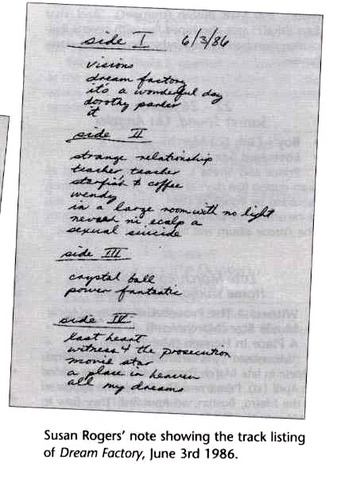 side I 6/3/86
visions
dream factory
it's a wonderful day
dorothy parker
it
side II
strange relationship
teacher, teacher
starfish & coffee
wendy
in a large room with no light
nevaeh ni ecalp a
sexual suicide
side III
crystal ball
power fantastic
side IV
last heart
witness 4 the prosecution
movie star
a place in heaven
all my dreams
Susan Rogers' note showing the track listing
of Dream Factory, June 3rd 1986.